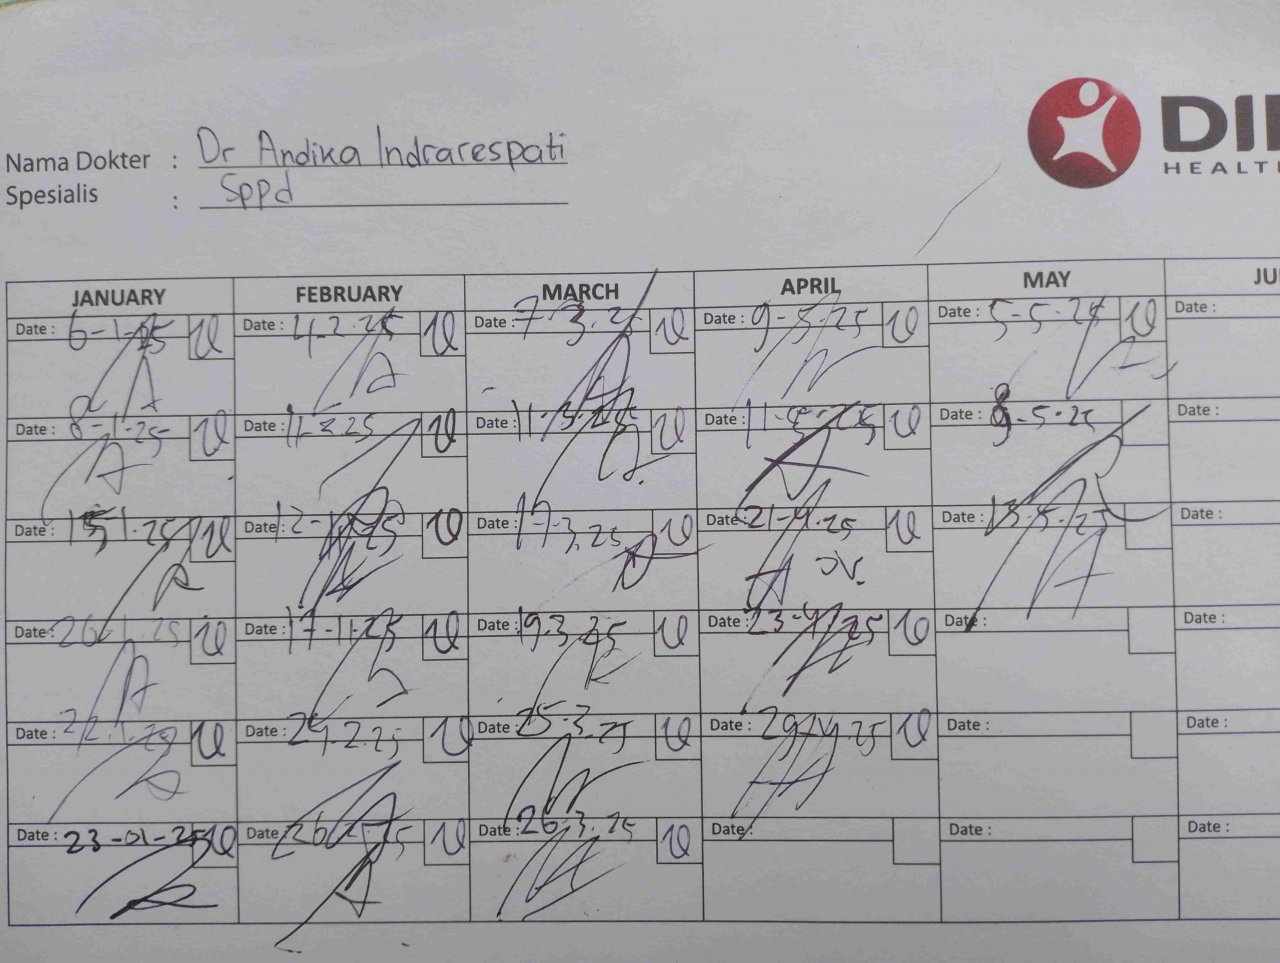 Nama Dokter : Dr Andika Indrarespati
Spesialis : Sppd
HEALT
JANUARY FEBRUARY MARCH APRIL MAY
Date : 6-1-25 Date : 4-2-25 Date : 7-3.25 Date : 9-5-25 Date : 5-5-25 Date :
Date : 8-1-25 Date : 11-2.25 Date : 11-3-25 Date : 11- -25 Date : -5-25 Date :
Date : 1.25 Date : 12- Date : 17-3.25 Date : 21-4.25 Date : 13-5-25 Date :
Date : 1.25 Date : 17-11-25 Date : 19.3.25 Date : 23-4-25 Date : Date :
Date : Date : 24.2.25 Date : 25-3-25 Date : 29-4.25 Date : Date :
Date : 23-01-25 Date : 26 Date : 26.3.25 Date : Date : Date :